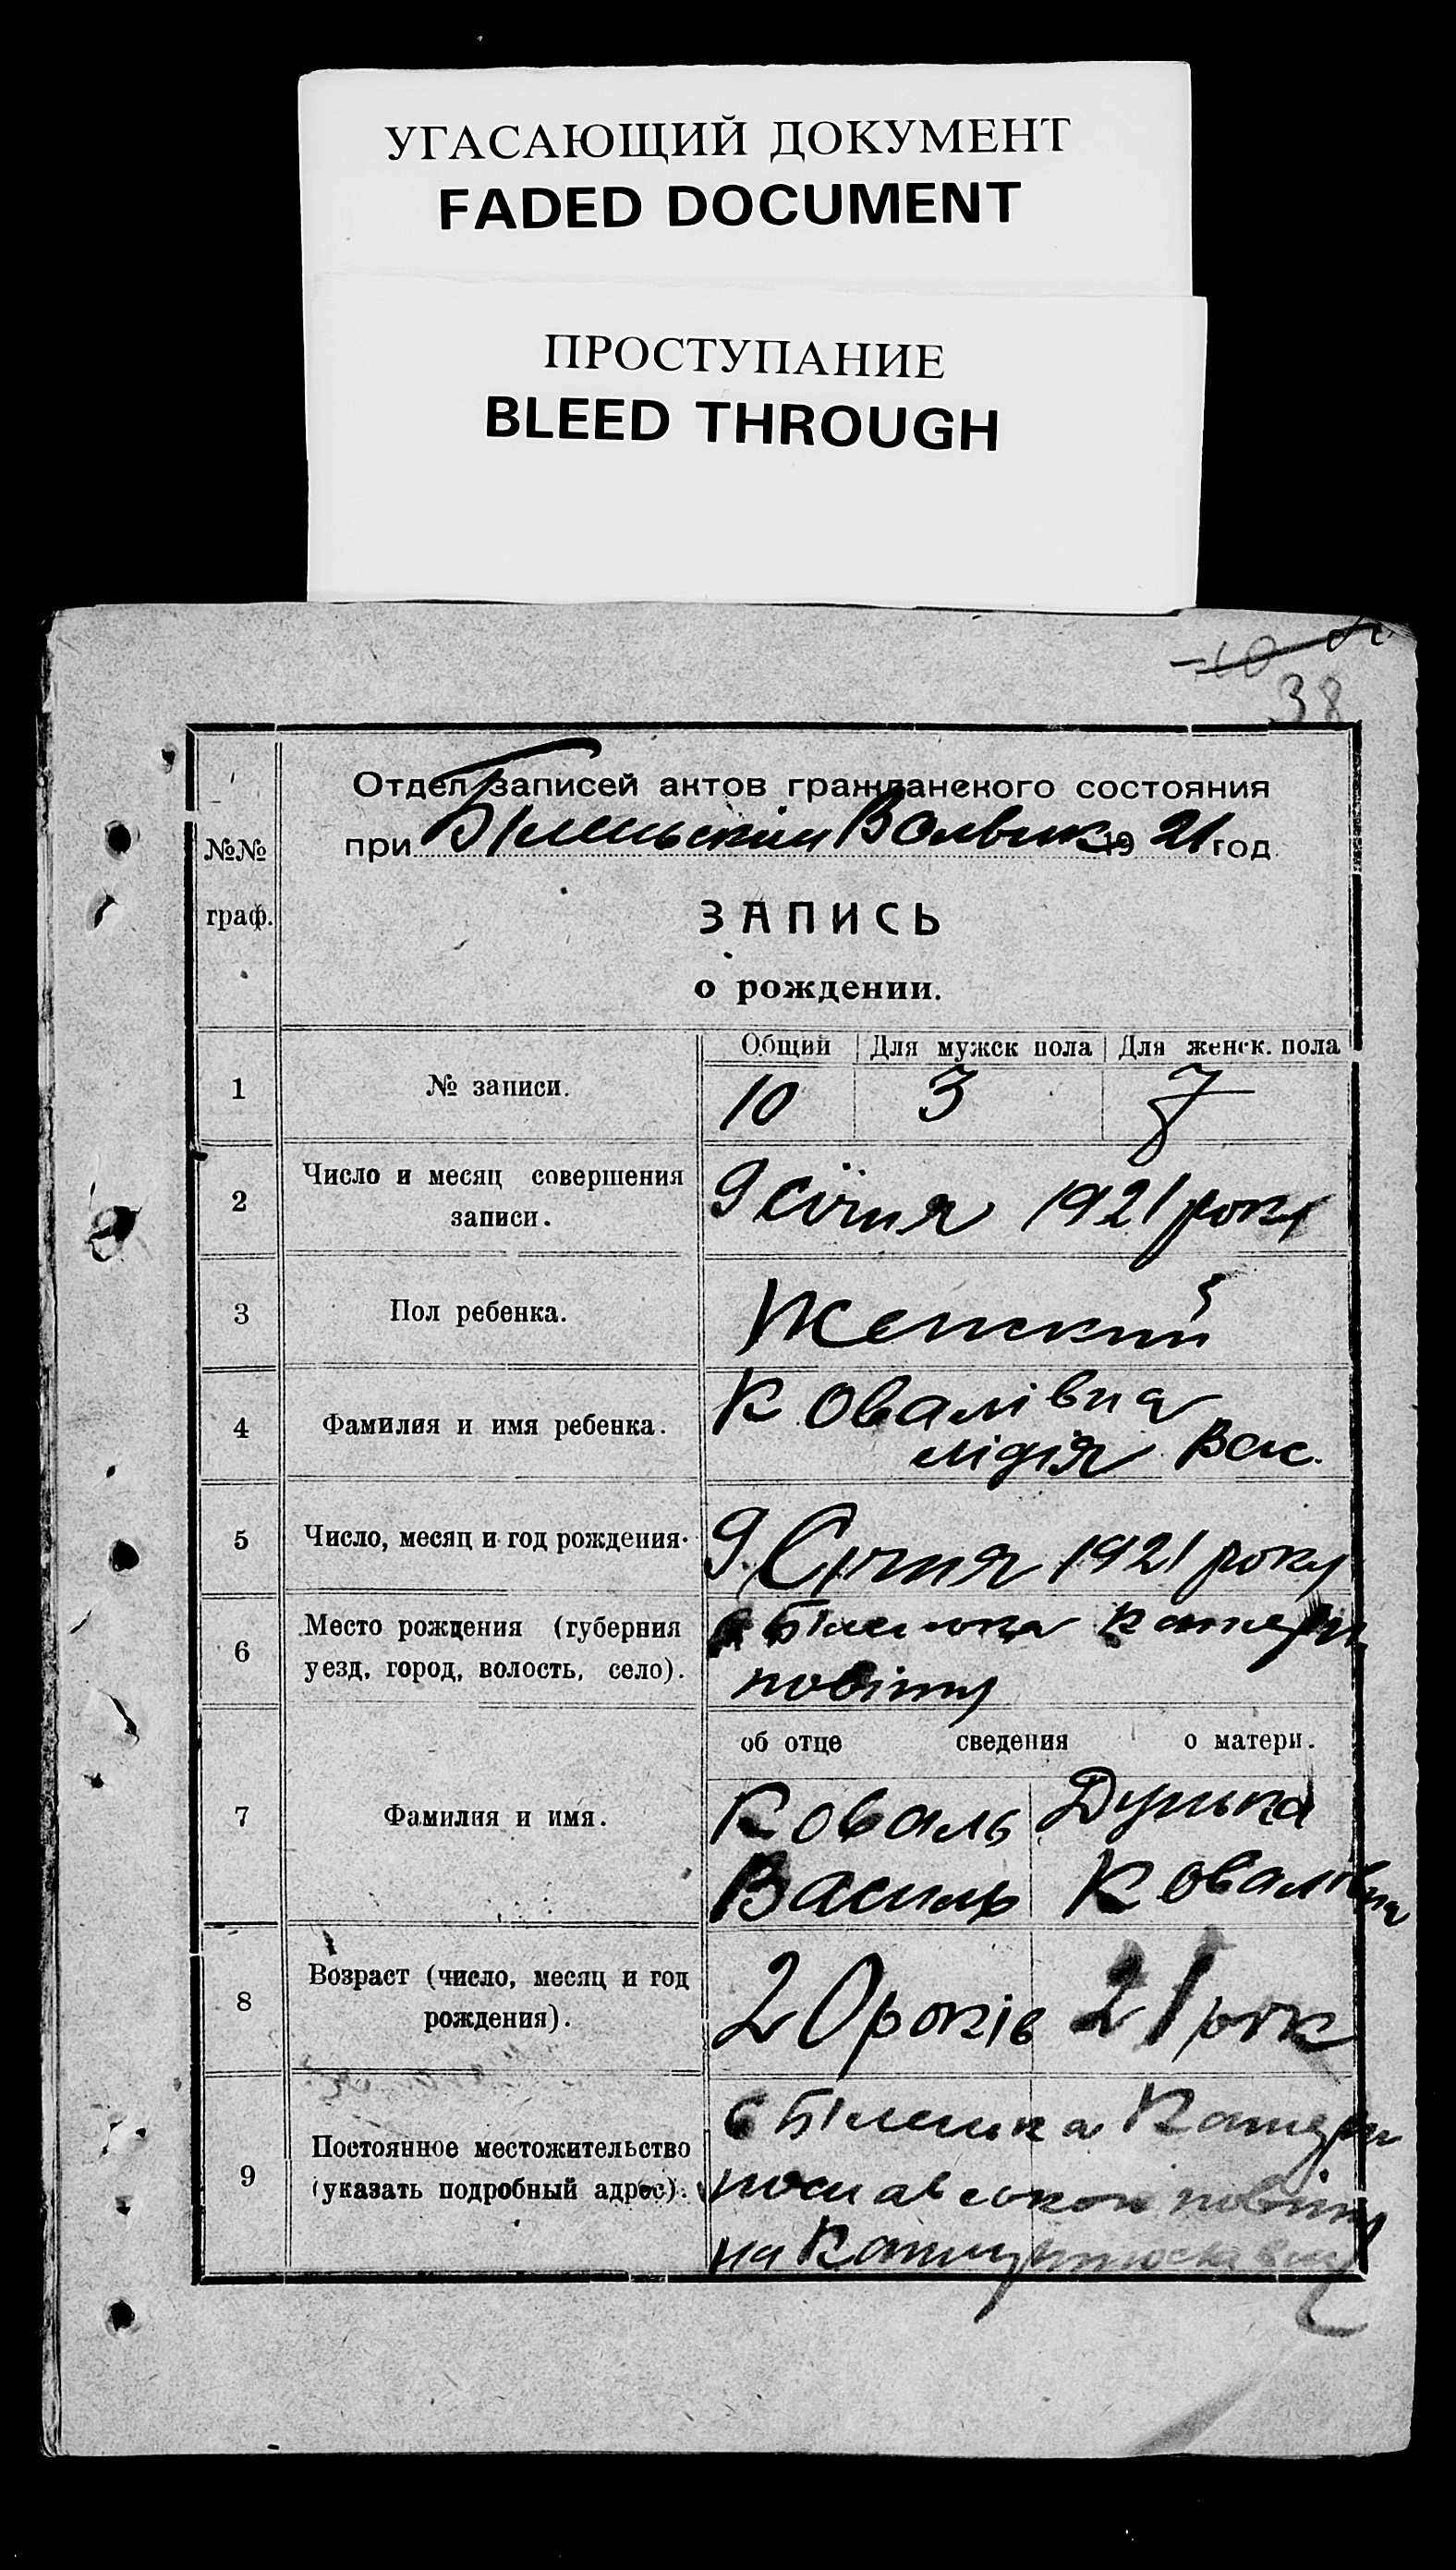 УГАСАЮЩИЙ ДОКУМЕНТ
FADED DOCUMENT
ПРОСТУПАНИЕ
BLEED THROUGH
38
Отдел записей актов гражданского состояния
№№ граф.
при Білєньскім Волвик 1921 год
ЗАПИСЬ
о рождении.
Общий Для мужск пола Для женск. пола
1 № записи. 10 3 7
2 Число и месяц совершения записи. 9 січня 1921 року
3 Пол ребенка. Женский
4 Фамилия и имя ребенка. Ковалівна
лідія Вас.
5 Число, месяц и год рождения. 9 Січня 1921 року
6 Место рождения (губерния
уезд, город, волость, село).
повіту
об отце сведения о матери.
7 Фамилия и имя. Коваль Дунька
Василь Ковалівна
8 Возраст (число, месяц и год рождения). 20 років 21 рік
9 Постоянное местожительство
(указать подробный адрес).